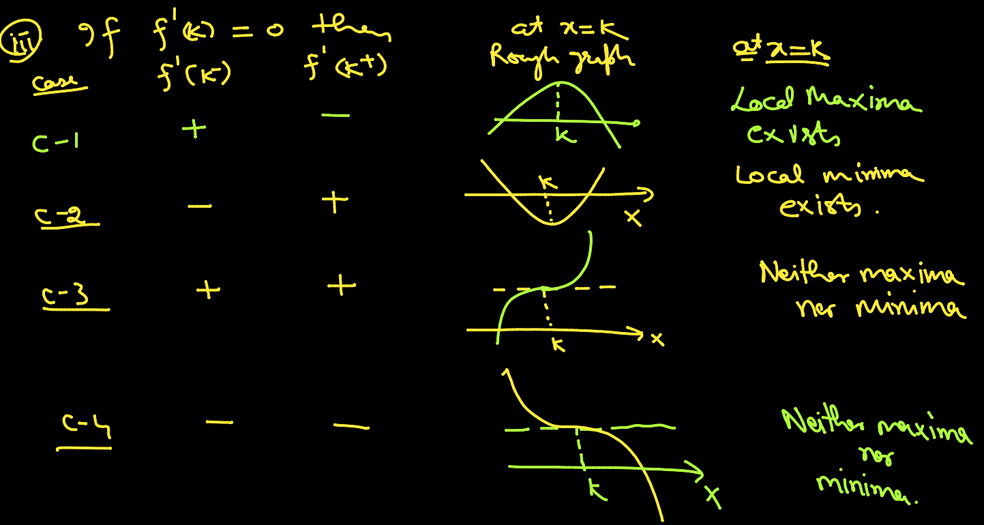 iii) If f'(k) = 0 then
case f'(k-) f'(k+) at x=k Rough graph at x=k
C-1 + - k Local Maxima exists
C-2 - + k x Local minima exists.
C-3 + + k x Neither maxima nor minima
C-4 - - k x Neither maxima nor minima.